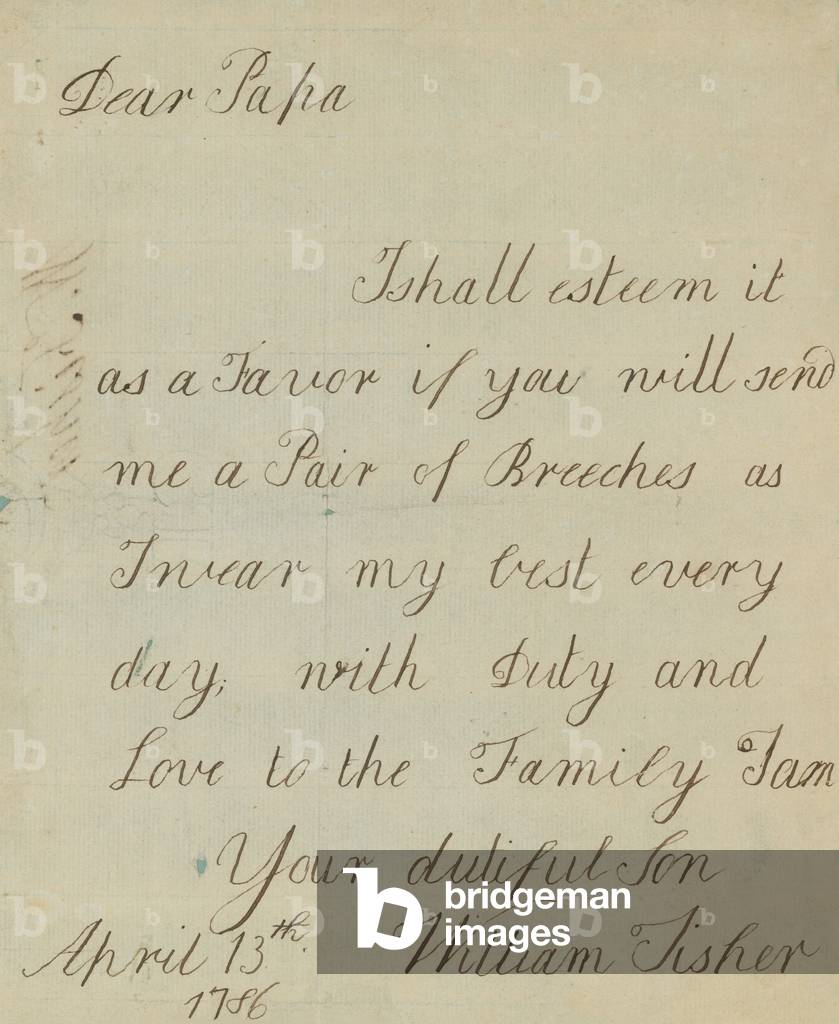 Dear Papa
I shall esteem it
as a Favor if you will send
me a Pair of Breeches as
I wear my best every
day; with Duty and
Love to the Family I am
Your dutiful Son
April 13th. William Fisher
1786
bridgeman
images